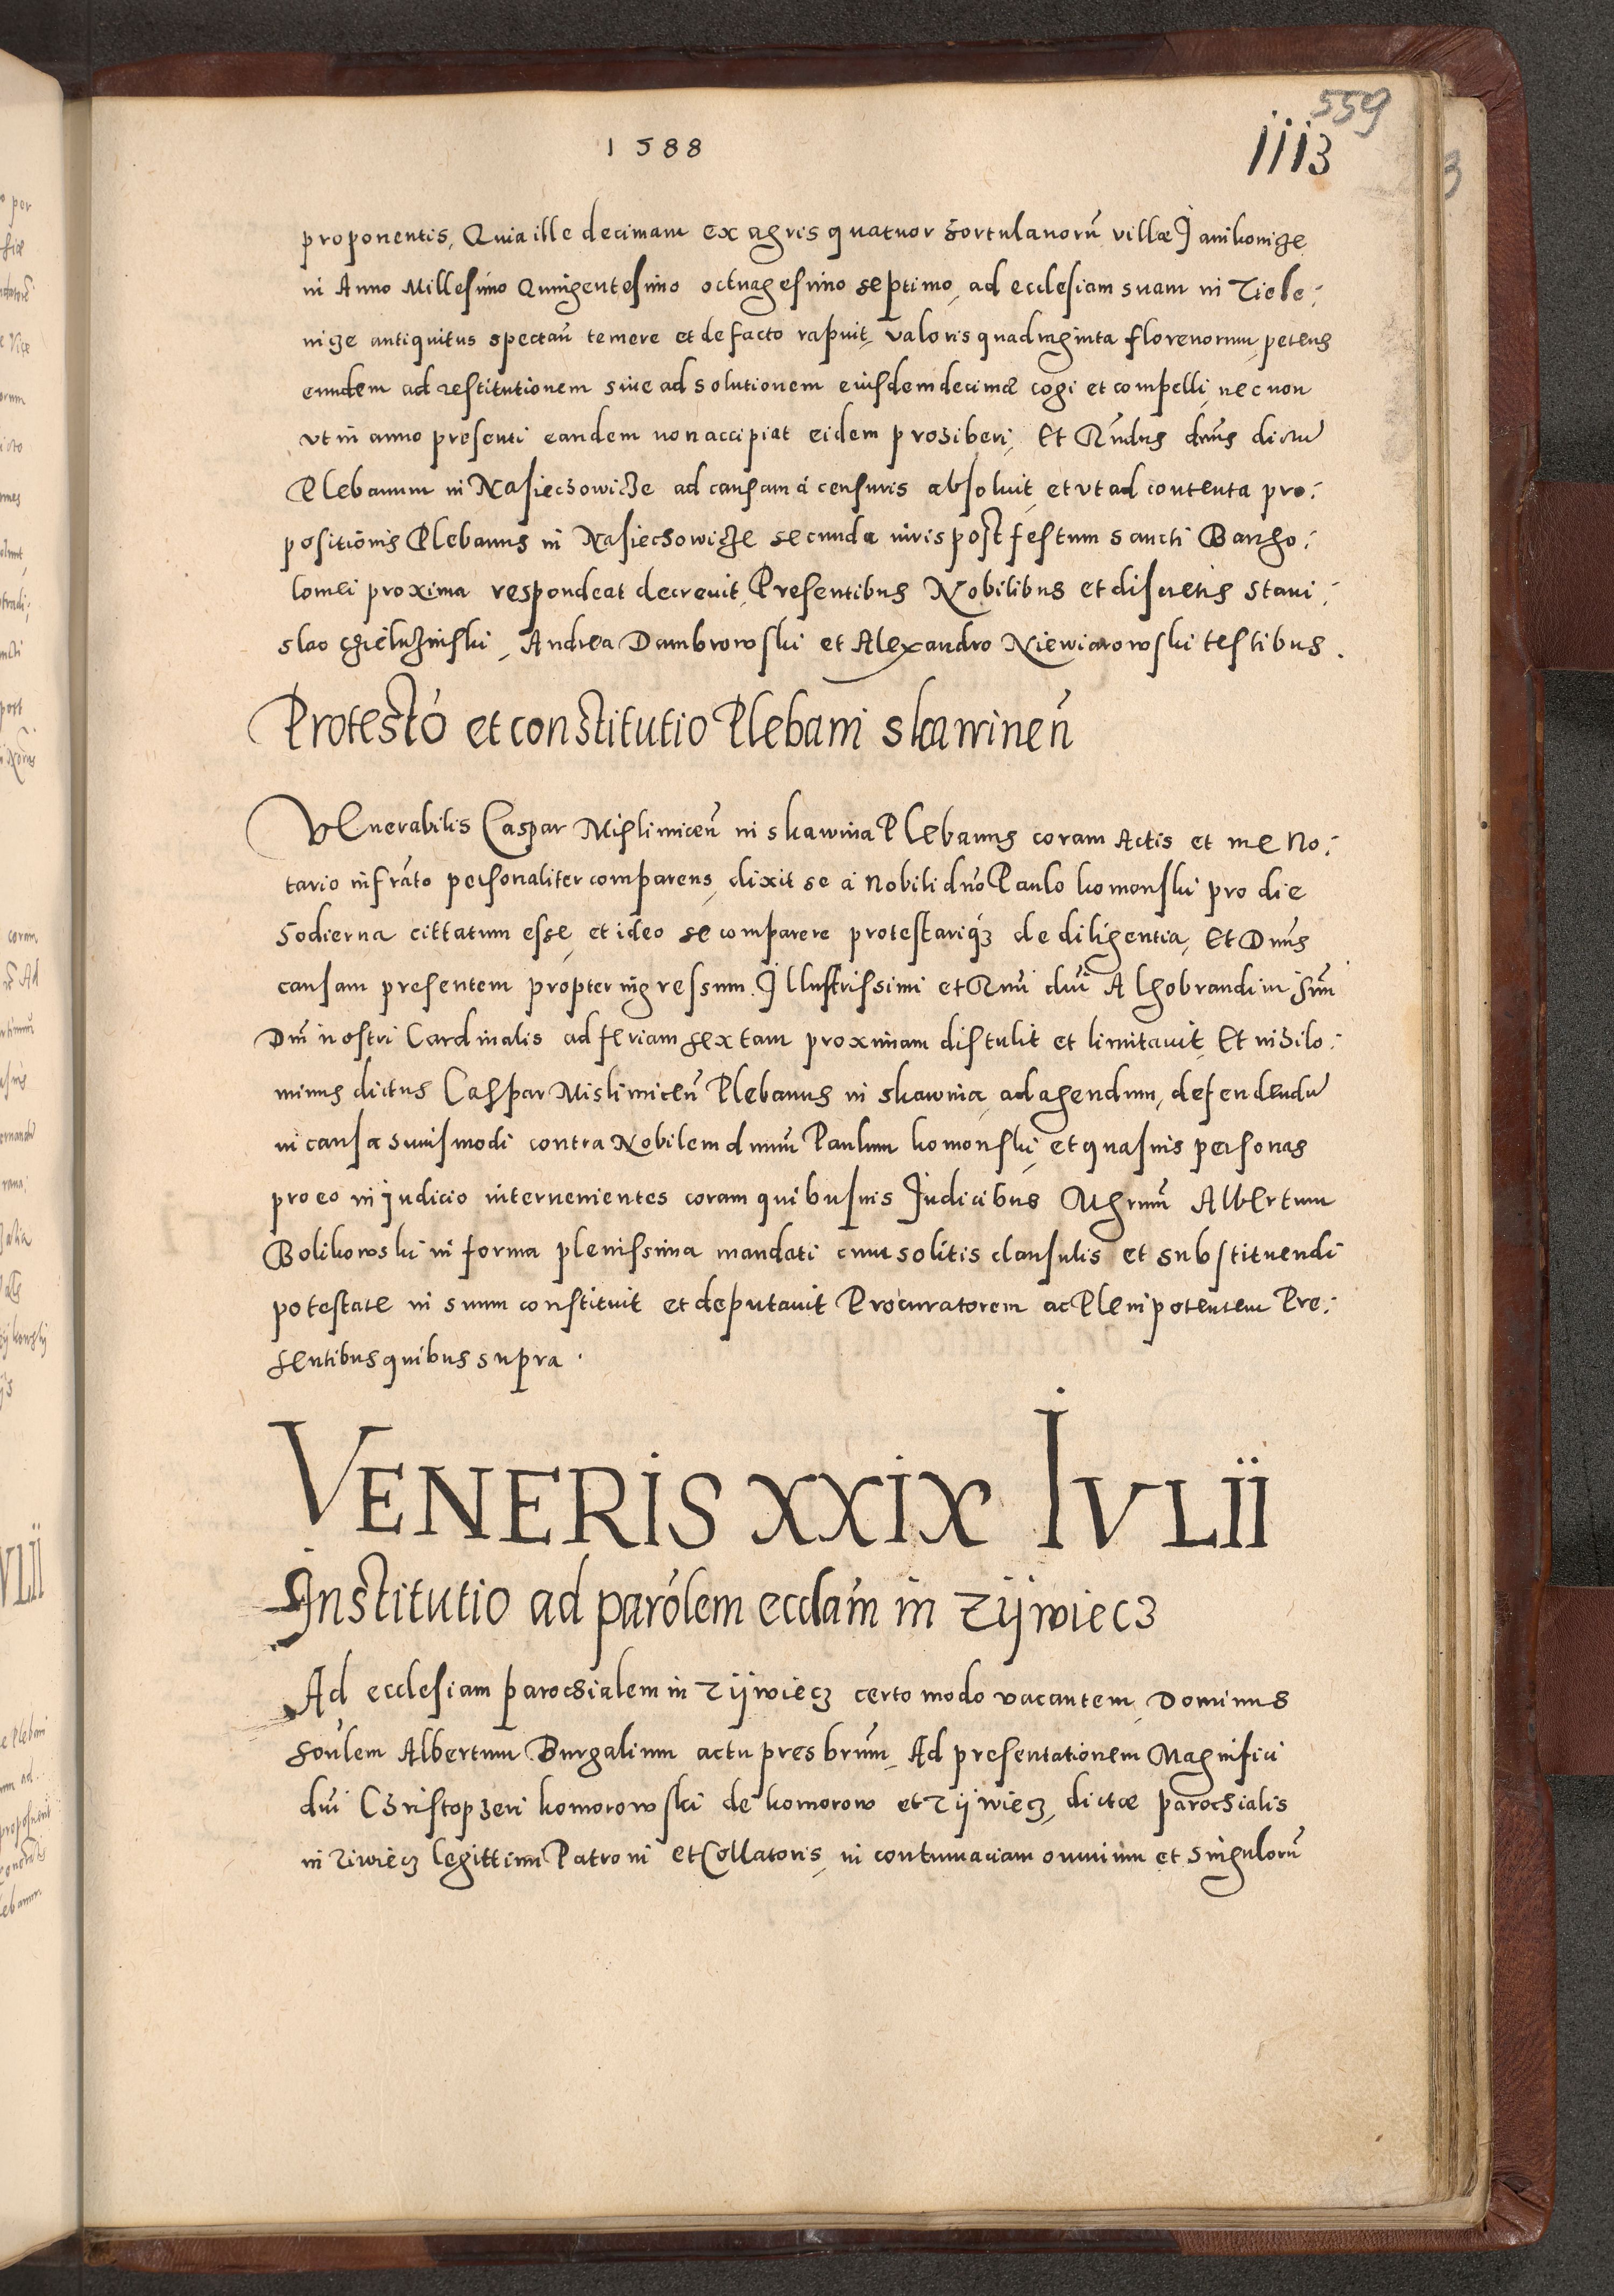 559
1588
iii3
proponentis, Quia ille decimam ex agris quatuor hortulanorū villæ Janikowicze
in Anno Millesimo Quingentesimo octuagesimo septimo, ad ecclesiam suam in Ziele:
nicze antiquitus spectañ temere et de facto rapuit, valoris quadraginta florenorum, petens
eundem ad restitutionem siue ad solutionem eiusdem decimæ cogi et compelli, nec non
vt in anno presenti eandem non accipiat eidem prohiberi, Et Rñdus dñus dictū
Plebanum in Nasiechowicze ad causam á censuris absoluit, et vt ad contenta pro:
positiōnis Plebanus in Nasiechowicze secunda iuris post festum sancti Bartho:
lomei proxima respondeat decreuit, Presentibus Nobilibus et discretis Stani:
slao Chieluzinski, Andrea Dambrowski et Alexandro Niewiarowski testibus.
Protestó et constitutio Plebani Skawineñ
Venerabilis Caspar Mislimiceñ in Skawina Plebanus coram Actis et me No:
tario infrāto personaliter comparens, dixit se á Nobili dño Paulo Komonski pro die
hodierna cittatum esse, et ideo se comparere protestariq3 de diligentia, Et Dñus
causam presentem propter ingressum Illustrissimi et Rmi dñi Alhobrandini Smi
Dñi nostri Cardinalis ad feriam sextam proximam distulit et limitauit, Et nihilo:
minus dictus Caspar Mislimiceñ Plebanus in Skawina, ad agendum, defendendū
in causa huiusmodi contra Nobilem dnum Paulum Komonski, et quasuis personas
pro eo in judicio interuenientes coram quibusuis Judicibus Mgrum Albertum
Bolikowski in forma plenissima mandati cum solitis clausulis et substituendi
potestate in suum constituit et deputauit Procuratorem ac Plenipotentem Pre:
sentibus quibus supra.
VENERIS XXIX IVLII
Institutio ad parólem ecclám in Zijwiecz
Ad ecclesiam parochialem in Zijwiecz certo modo vacantem, Dominus
hoñlem Albertum Burgalium actu presbrum, Ad presentationem Magnifici
dñi Christopheri Komorowski de Komorow et Zijwiecz, dictæ parochialis
in Ziwiecz legittimi Patroni et Collatoris, in contumaciam omnium et singulorū